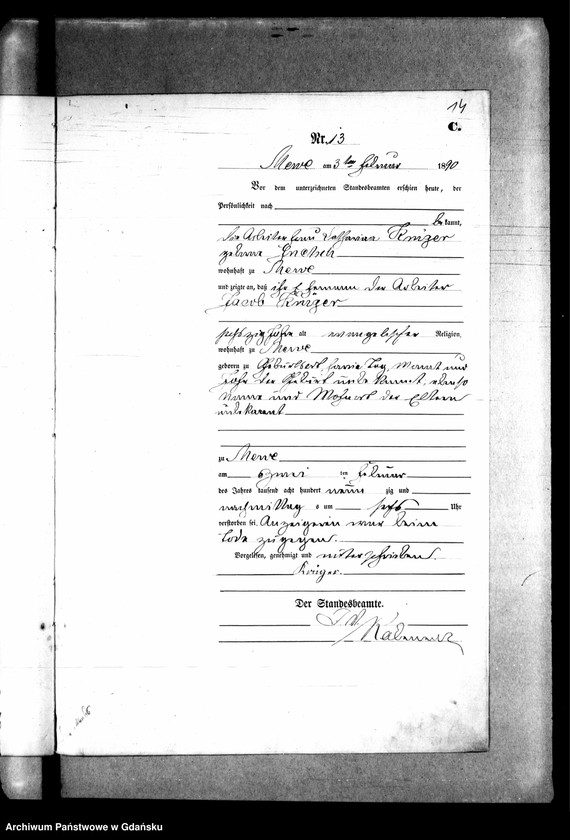 14
C.
Nr. 13
Mewe am 3ten Februar 1890
Vor dem unterzeichneten Standesbeamten erschien heute, der
Persönlichkeit nach
bekannt,
die Arbeiterfrau Catharina Krüger
geborne
wohnhaft zu Mewe
und zeigte an, daß ihr Ehemann der Arbeiter
Jacob Krüger
sechszig Jahre alt evangelischer Religion,
wohnhaft zu Mewe
geboren zu Geburtsort, sowie Tag, Monat und
Jahr der Geburt unbekannt, ebenso
Name und Wohnort der Eltern
unbekannt
zu Mewe
am zwei ten Februar
des Jahres tausend acht hundert neun zig und
nachmittag s um sechs Uhr
verstorben sei. Anzeigerin war beim
Tode zugegen.
Vorgelesen, genehmigt und unterschrieben.
Krüger.
Der Standesbeamte.
Archiwum Państwowe w Gdańsku